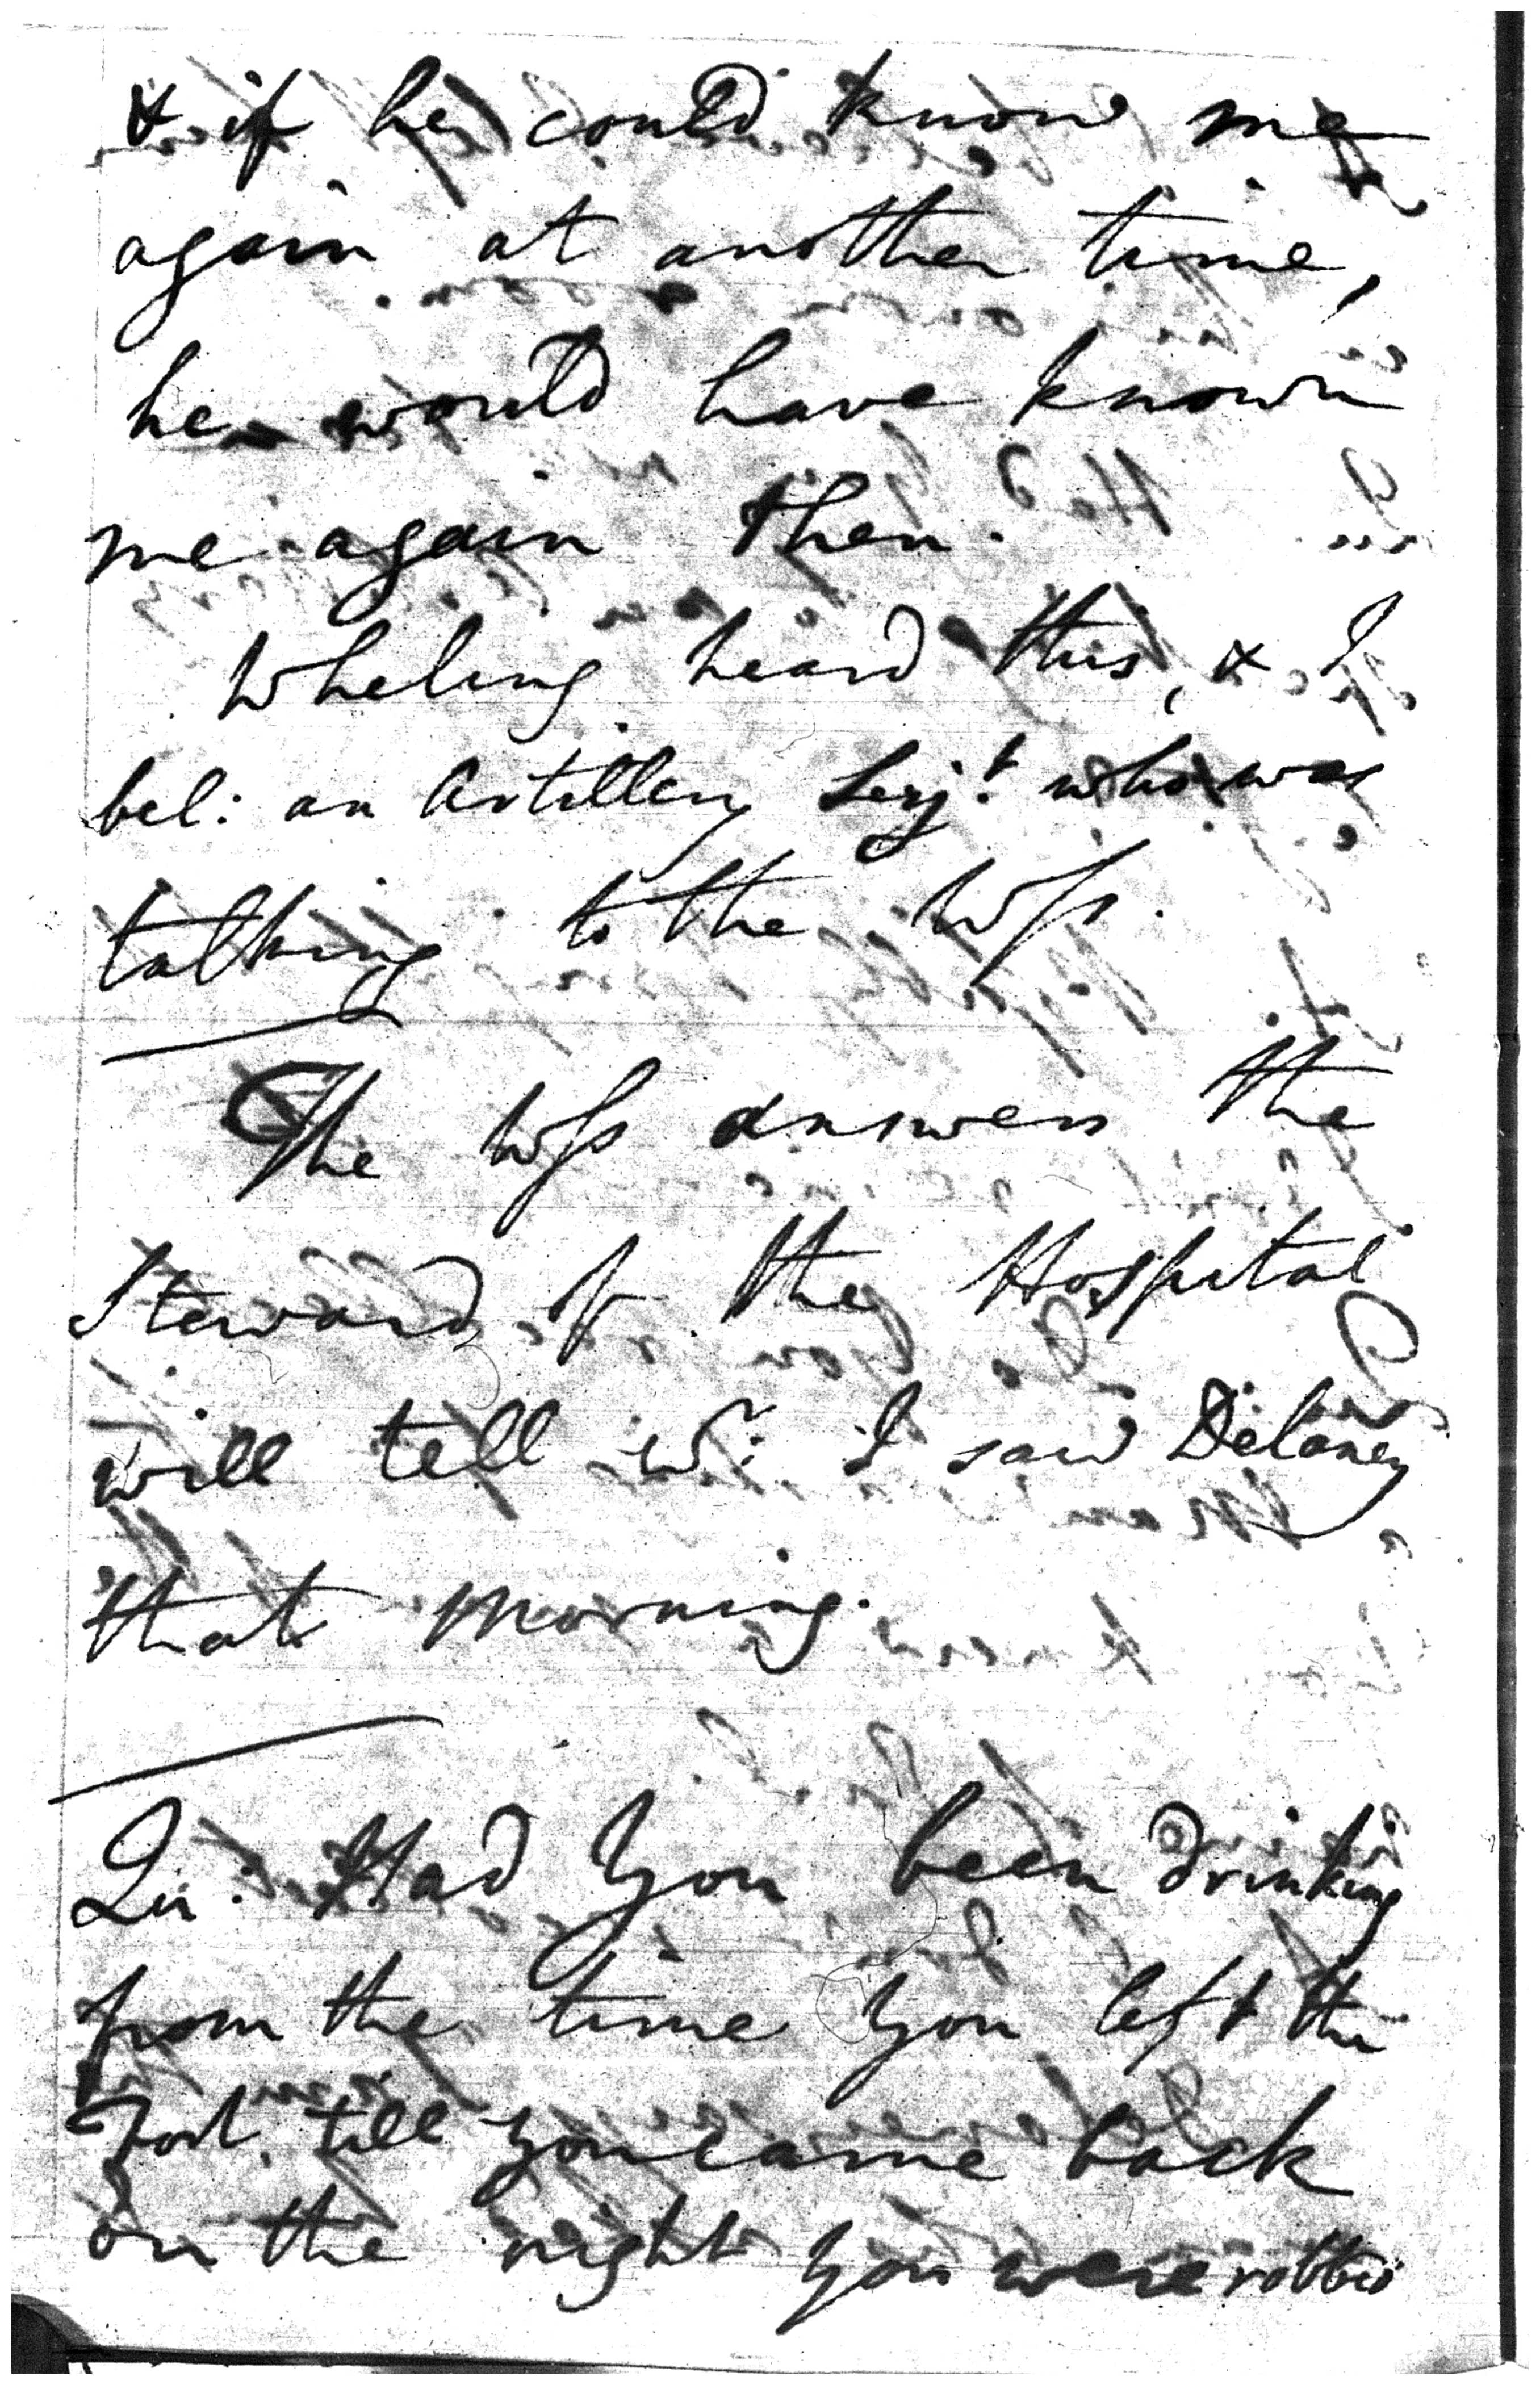 & if he could know me
again at another time,
he would have known
me again then.
Wheling heard this, & I
bel: an Artillery Serjt. who was
talking to the Wss.
The Wss answers the
Steward of the Hospital
will tell w: I saw Delaney
that morning.
Qu: Had you been drinking
from the time you left the
Fort till you came back
on the night you were robbed